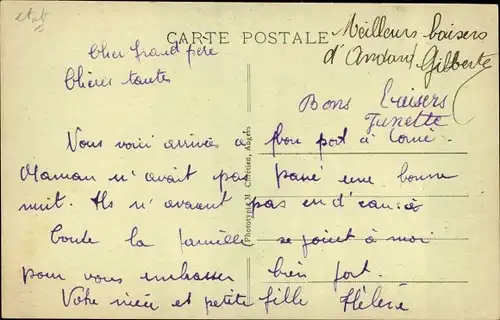 CARTE POSTALE
Meilleurs baisers
d'Armand Gilberte
Cher Grand père
Chères tantes
Bons baisers
Junette
Nous voici arrivés à bon port à Corné.
Maman n'avait pas passé une bonne
nuit. Ils n'avaient pas eu d'eau.
Toute la famille se joint à moi
pour vous embrasser bien fort.
Votre nièce et petite fille Hélène
Phototypie M. Chrétien, Angers